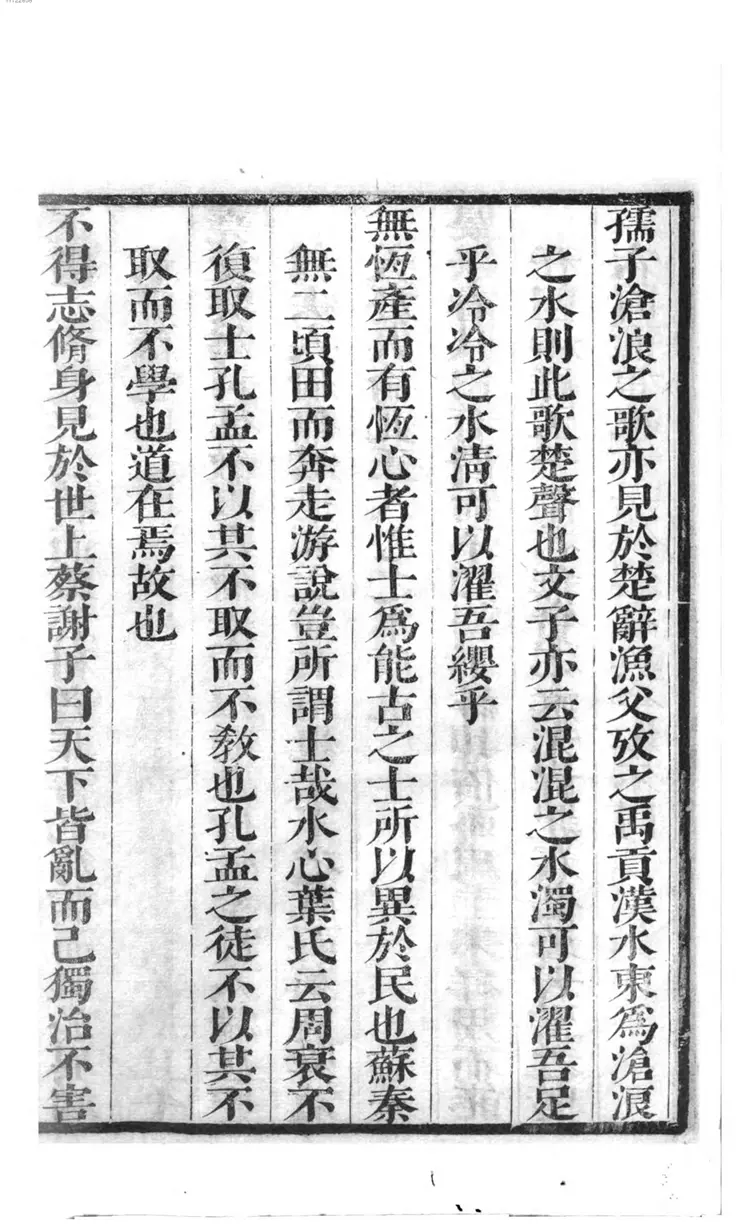 孺子滄浪之歌亦見於楚辭漁父攷之禹貢漢水東爲滄浪
之水則此歌楚聲也文子亦云混混之水濁可以濯吾足
乎泠泠之水清可以濯吾纓乎
無恆產而有恆心者惟士爲能古之士所以異於民也蘇秦
無二頃田而奔走游說豈所謂士哉水心葉氏云周衰不
復取士孔孟不以其不取而不敎也孔孟之徒不以其不
取而不學也道在焉故也
不得志脩身見於世上蔡謝子曰天下皆亂而己獨治不害